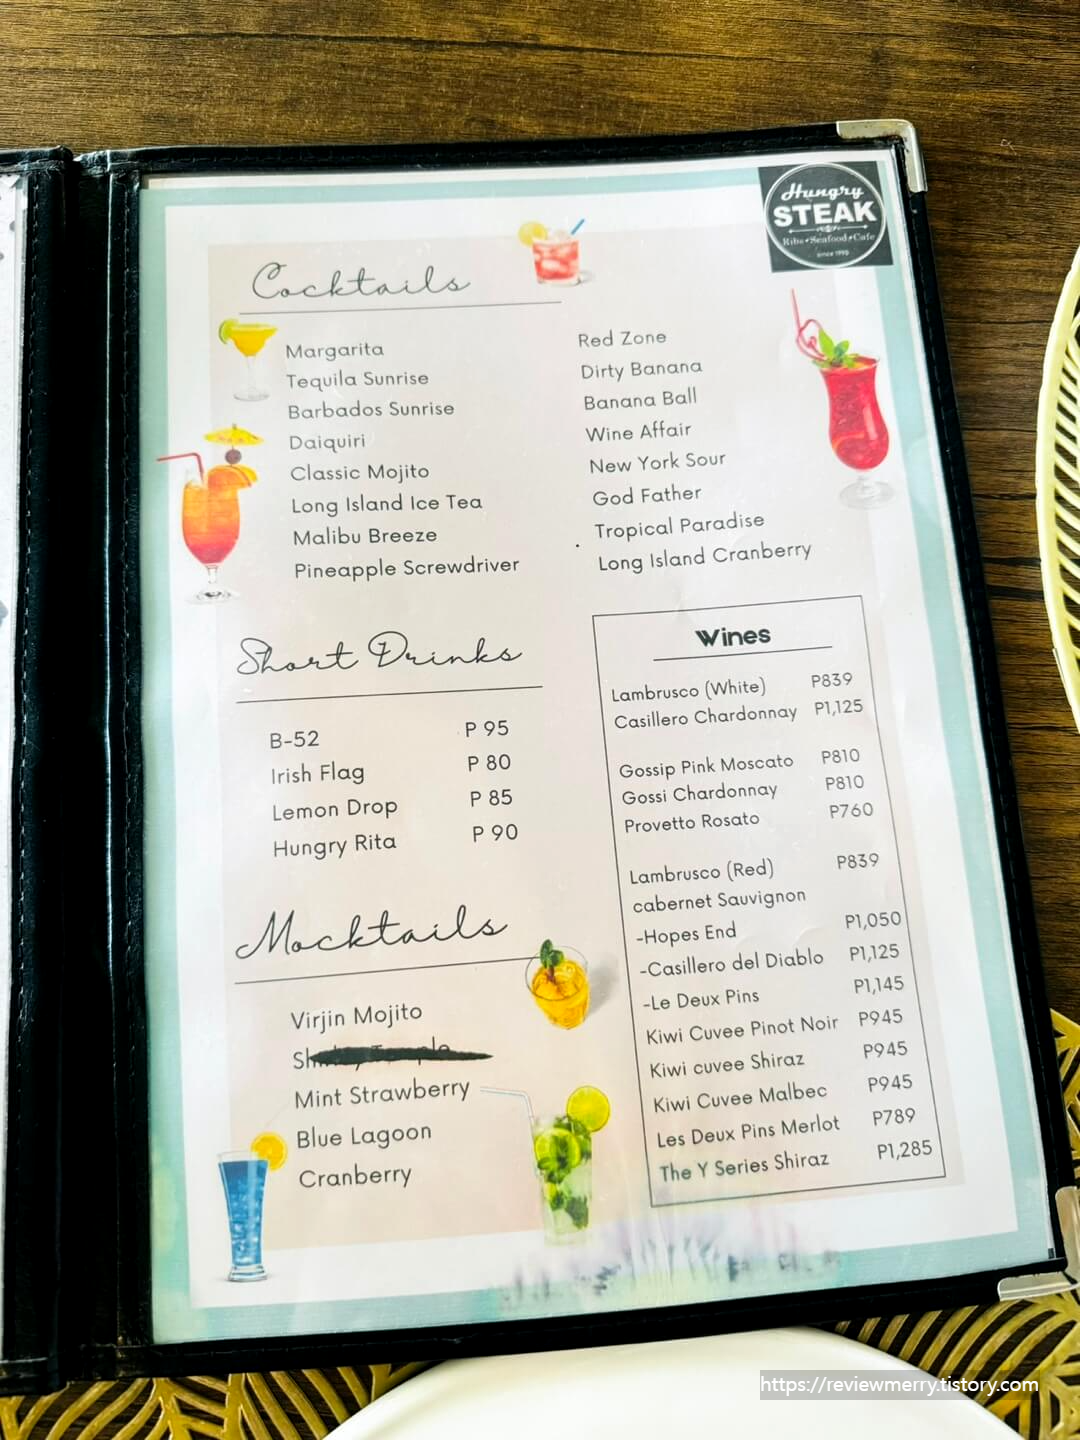 Hungry
STEAK
Ribs • Seafood • Cafe
since 1990
Cocktails
Margarita
Tequila Sunrise
Barbados Sunrise
Daiquiri
Classic Mojito
Long Island Ice Tea
Malibu Breeze
Pineapple Screwdriver
Red Zone
Dirty Banana
Banana Ball
Wine Affair
New York Sour
God Father
Tropical Paradise
Long Island Cranberry
Short Drinks
B-52 P 95
Irish Flag P 80
Lemon Drop P 85
Hungry Rita P 90
Mocktails
Virjin Mojito
Mint Strawberry
Blue Lagoon
Cranberry
Wines
Lambrusco (White) P839
Casillero Chardonnay P1,125
Gossip Pink Moscato P810
Gossi Chardonnay P810
Provetto Rosato P760
Lambrusco (Red) P839
cabernet Sauvignon
-Hopes End P1,050
-Casillero del Diablo P1,125
-Le Deux Pins P1,145
Kiwi Cuvee Pinot Noir P945
Kiwi cuvee Shiraz P945
Kiwi Cuvee Malbec P945
Les Deux Pins Merlot P789
The Y Series Shiraz P1,285
https://reviewmerry.tistory.com